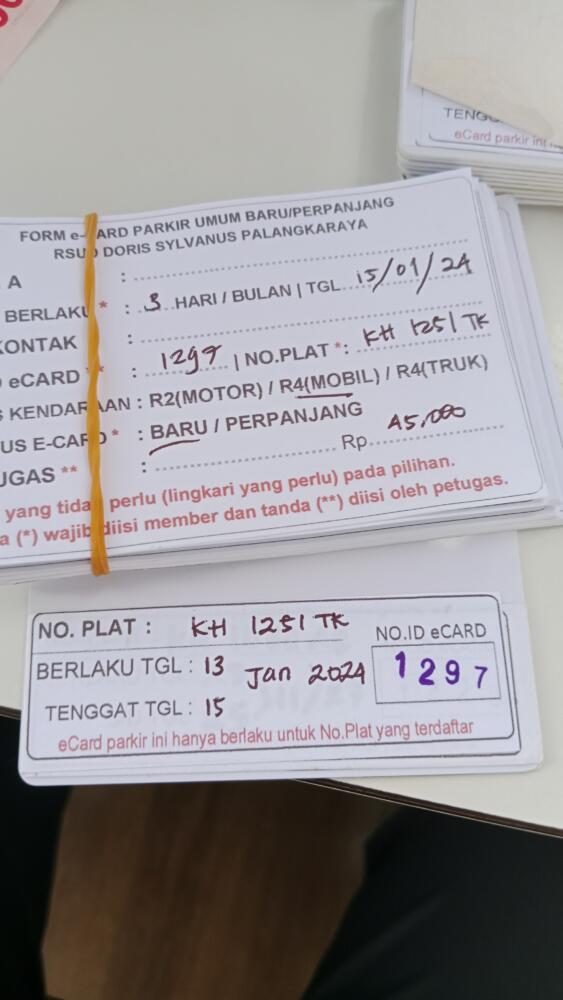 TENGG
eCard parkir ini h
FORM e-CARD PARKIR UMUM BARU/PERPANJANG
RSUD DORIS SYLVANUS PALANGKARAYA
A :
BERLAKU * : 3 HARI / BULAN | TGL 15/01/24
KONTAK :
eCARD ** : 1297 | NO.PLAT *: KH 1251 TK
KENDARAAN : R2(MOTOR) / R4(MOBIL) / R4(TRUK)
US E-CARD * : BARU / PERPANJANG
UGAS ** : Rp. 45,000
yang tidak perlu (lingkari yang perlu) pada pilihan.
a (*) wajib diisi member dan tanda (**) diisi oleh petugas.
NO. PLAT : KH 1251 TK
NO.ID eCARD
BERLAKU TGL : 13 Jan 2024
1297
TENGGAT TGL : 15
eCard parkir ini hanya berlaku untuk No.Plat yang terdaftar